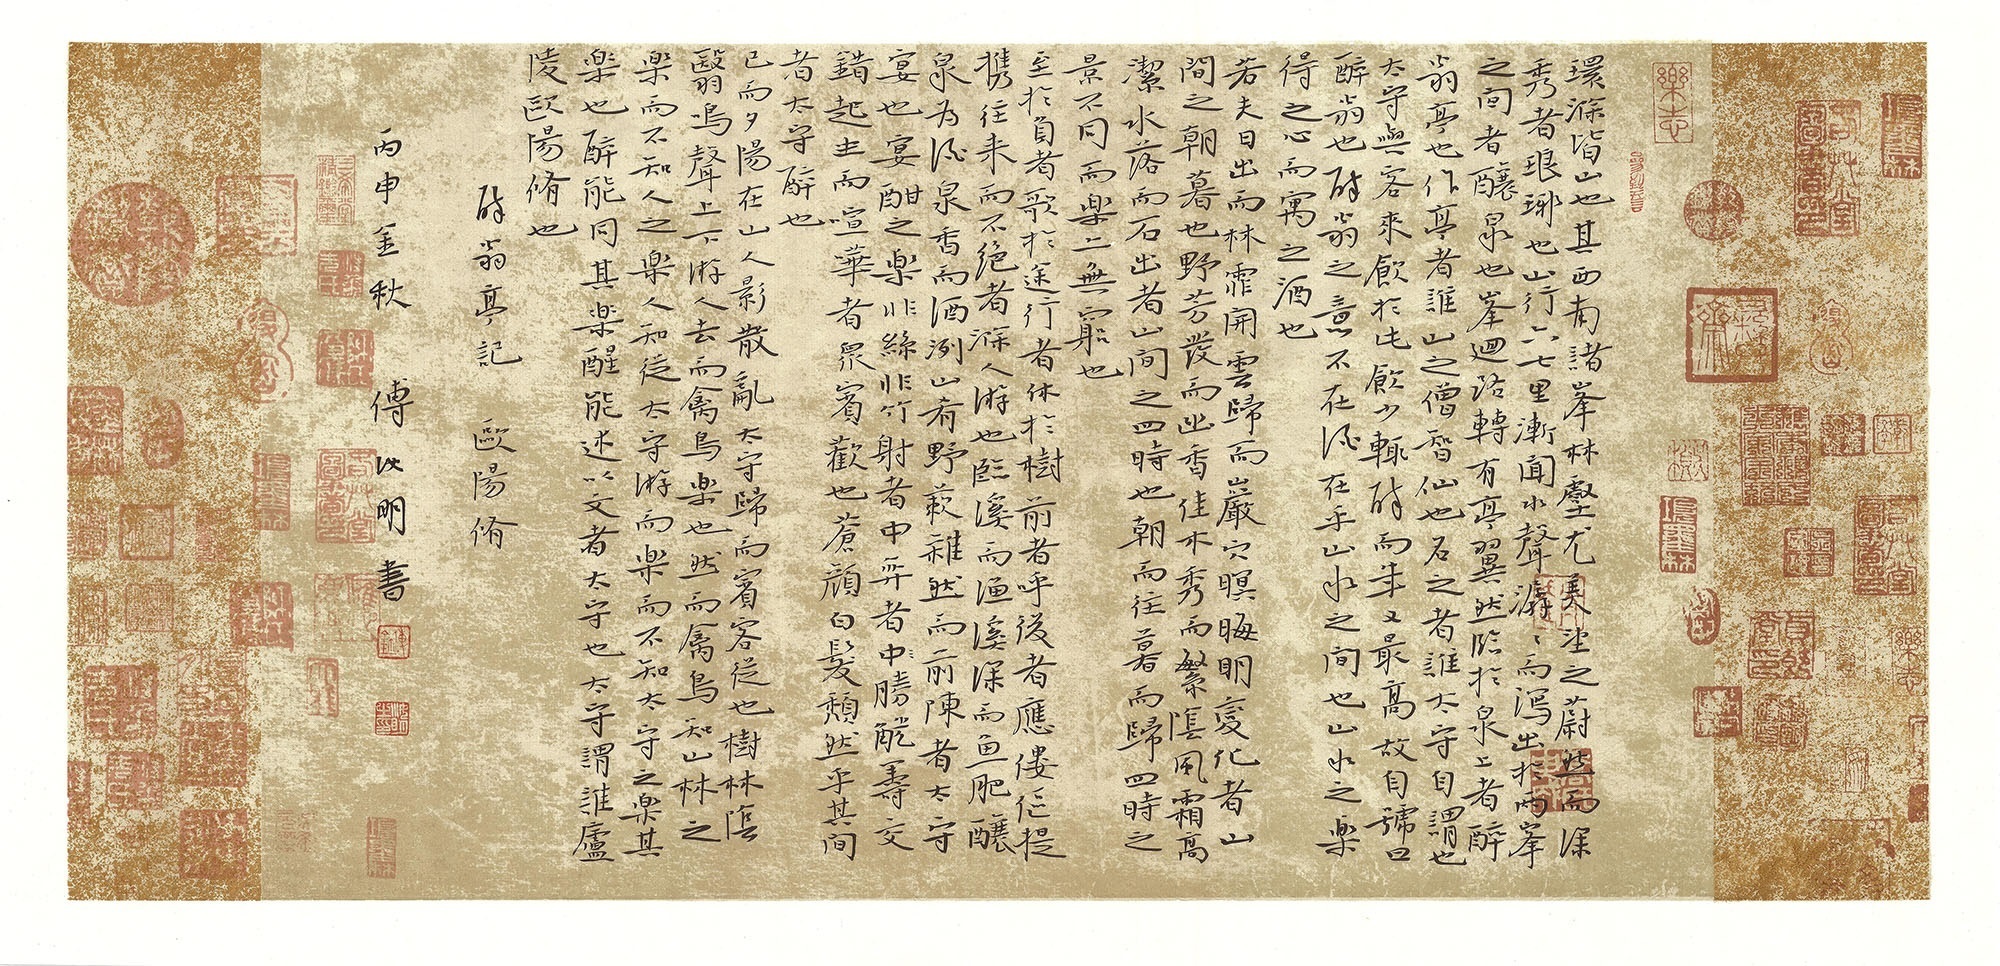 環滁皆山也其西南諸峯林壑尤美望之蔚然而深
秀者琅琊也山行六七里漸聞水聲潺〻而瀉出於兩峯
之间者釀泉也峯迴路轉有亭翼然臨於泉上者醉
翁亭也作亭者誰山之僧智仙也名之者誰太守自謂也
太守與客來飲於此飲少輒醉而年又最高故自號曰
醉翁也醉翁之意不在酒在乎山水之间也山水之樂
得之心而寓之酒也
若夫日出而林霏開雲歸而巖穴暝晦明變化者山
間之朝暮也野芳發而幽香佳木秀而繁陰風霜高
潔水落而石出者山間之四時也朝而往暮而歸四時之
景不同而樂亦無窮也
至於負者歌於途行者休於樹前者呼後者應僂傴提
携往来而不绝者滁人游也臨溪而漁溪深而魚肥釀
泉為酒泉香而酒洌山肴野蔌雜然而前陳者太守
宴也宴酣之樂非絲非竹射者中弈者中勝觥籌交
錯起坐而喧華者眾賓歡也蒼顏白髮頹然乎其間
者太守醉也
已而夕陽在山人影散亂太守歸而賓客從也樹林陰
翳鳴聲上下游人去而禽鳥樂也然而禽鳥知山林之
樂而不知人之樂人知從太守游而樂而不知太守之樂其
樂也醉能同其樂醒能述以文者太守也太守謂誰廬
陵歐陽脩也
醉翁亭記 歐陽脩
丙申金秋 傅明書